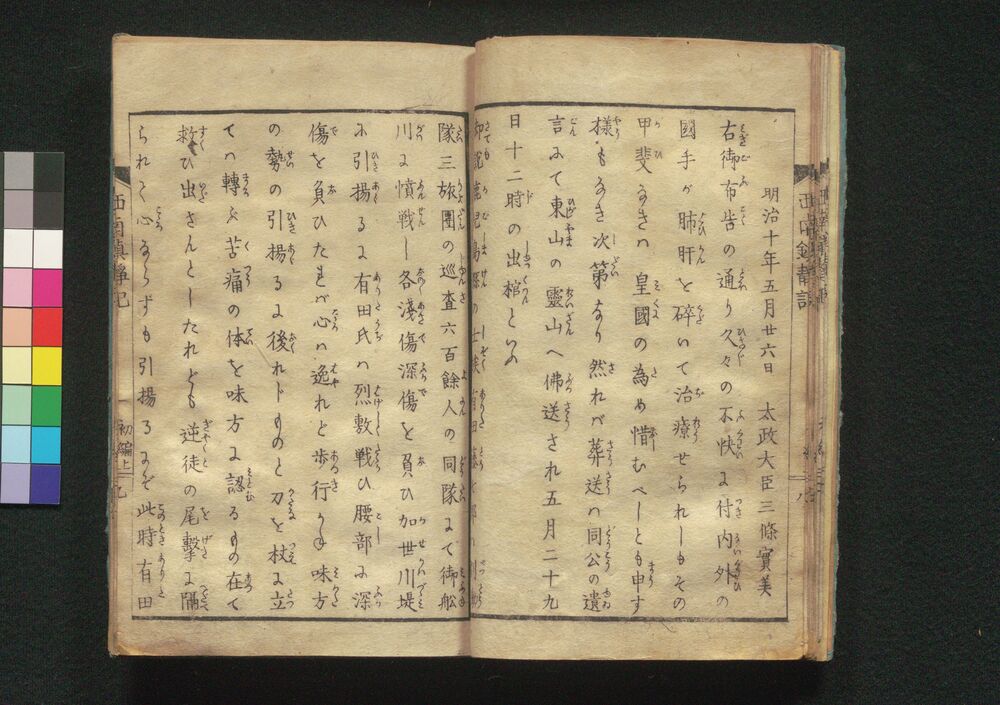 明治十年五月廿六日　太政大臣三條實美
右御布告の通り久々の不快に付内外の
國手が肺肝を碎いて治療せられしもその
甲斐なきハ皇國の為め惜むべしとも申す
様もなき次第なり然れバ葬送ハ同公の遺
言にて東山の靈山へ佛送され五月二十九
日十二時の出棺といふ
隊三旅團の巡査六百餘人の同隊にて御舩
川に憤戦し各淺傷深傷を負ひ加世川堤
に引揚るに有田氏ハ烈敷戦ひ腰部に深
傷を負ひたれバ心ハ逸れど歩行かね味方
の勢の引揚るに後れじものと刀を杖に立
てハ轉ぶ苦痛の体を味方に認るもの在て
救ひ出さんとしたれども逆徒の尾擊に隔
られて心ならずも引揚るにぞ此時有田
初編上